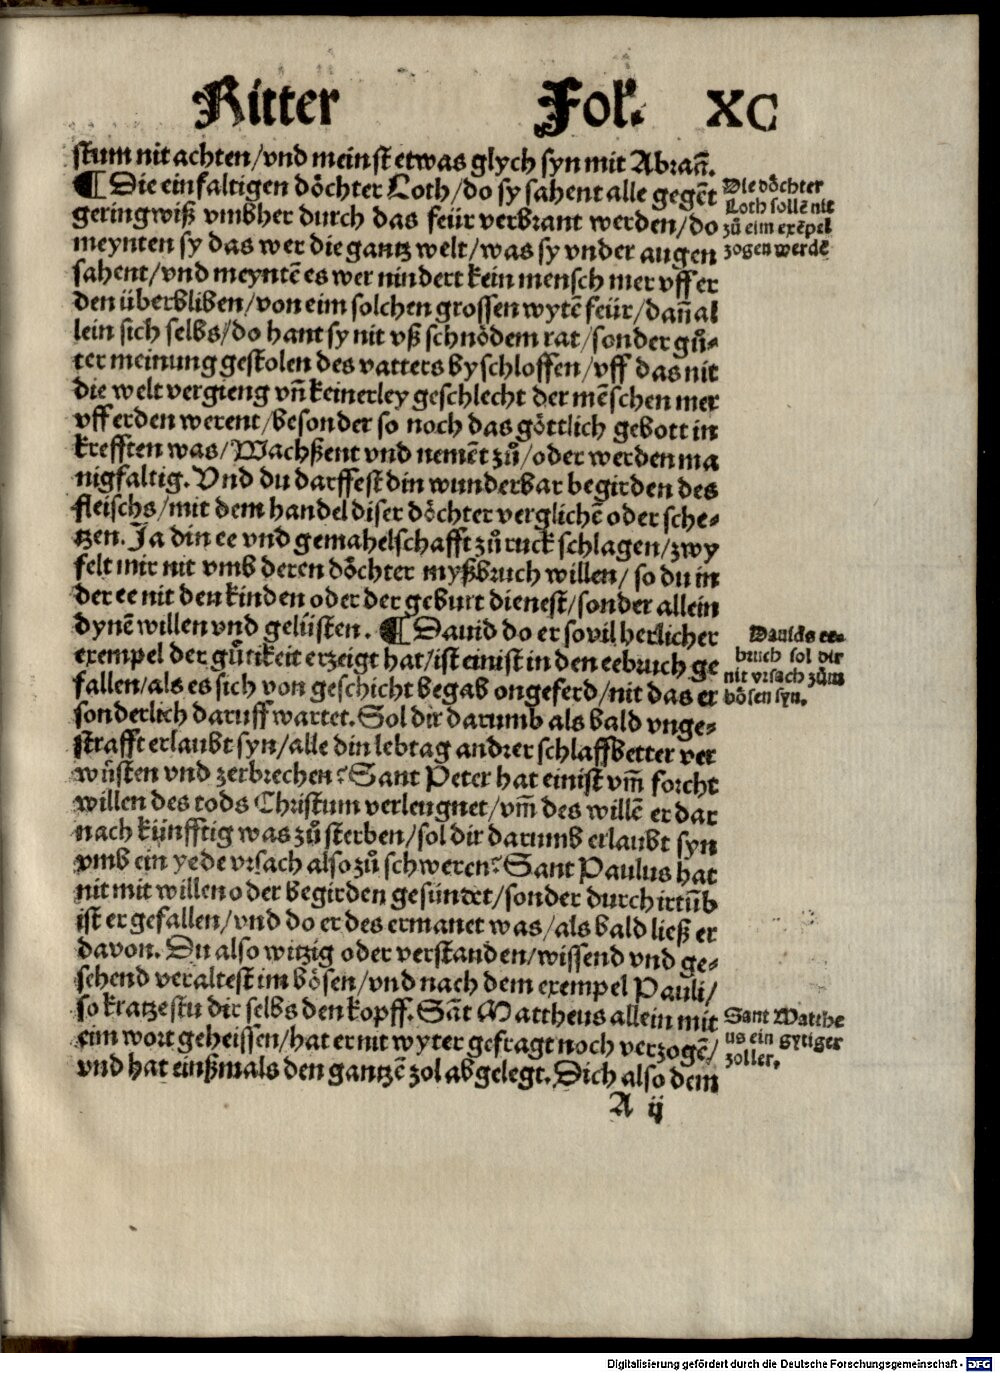 Ritter Fol. XC
stum nit achten/vnd meinst etwas glych syn mit Abrañ.
¶ Die einfaltigen döchter Loth/do sy sahent alle gegēt
geringwiß vmbher durch das feür verbrant werden/do
meynten sy das wer die gantz welt/was sy vnder augen
sahent/vnd meyntē es wer nindert kein mensch mer vff er
den überbliben/von eim solchen grossen wytē feür/dañ al
lein sich selbs/do hant sy nit vß schnödem rat/sonder gůt-
ter meinung gestolen des vatters byschloffen/vff das nit
die welt vergieng vñ keinerley geschlecht der mēschen mer
vff erden werent/besonder so noch das göttlich gebott in
krefften was/Wachßent vnd nemēt zů/oder werden ma
nigfaltig. Vnd du darffest din wunderbar begirden des
fleischs/mit dem handel diser döchter verglichē oder sche-
tzen. Ja din ee vnd gemahelschafft zů ruck schlagen/zwy
felt mir nit vmb deren döchter myßbruch willen/ so du in
der ee nit den kinden oder der geburt dienest/sonder allein
dynē willen vnd gelüsten. ¶ Dauid do er so vil herlicher
exempel der gůtikeit erzeigt hat/ist einist in den eebruch ge
fallen/als es sich von geschicht begab ongeferd/nit das er
sonderlich daruff wartet. Sol dir darumb als bald vnge-
strafft erlaubt syn/alle din lebtag andrer schlaffbetter ver
wüsten vnd zerbrechen? Sant Peter hat einist vm̄ forcht
willen des tods Christum verleugnet/vm̄ des willē er dar
nach künfftig was zů sterben/sol dir darumb erlaubt syn
vmb ein yede vrsach also zů schweren? Sant Paulus hat
nit mit willen oder begirden gesündet/sonder durch irtūb
ist er gefallen/vnd do er des ermanet was/als bald ließ er
davon. Du also witzig oder verstanden/wissend vnd ge-
sehend veraltest im bösen/vnd nach dem exempel Pauli/
so kratzestu dir selbs den kopff. Sāt Mattheus allein mit
eim wort geheissen/hat er nit wyter gefragt noch verzogē/
vnd hat einßmals den gantzē zol abgelegt. Dich also dem
A ij
Die döchter
Loth sollē nit
zů eim exēpel
zogen werdē
Dauids ee-
bruch sol dir
nit vrsach zům
bösen syn.
Sant Matthe
us ein gytiger
zoller.
Digitalisierung gefördert durch die Deutsche Forschungsgemeinschaft - DFG